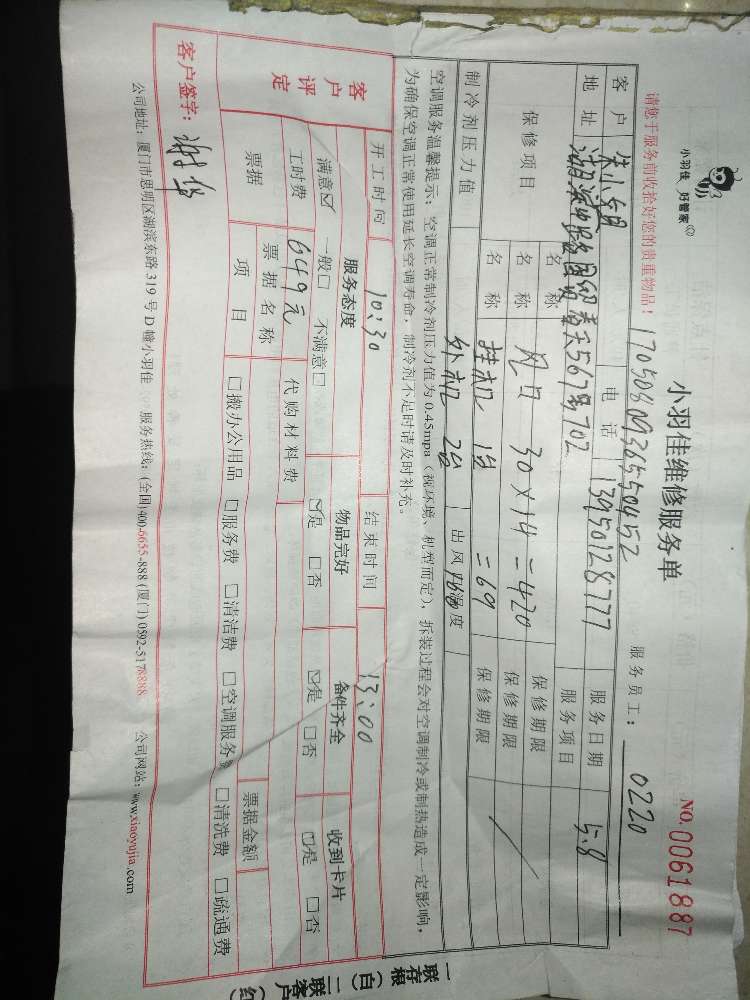 小羽佳 好管家
小羽佳维修服务单
NO.0061887
请您于服务前收拾好您的贵重物品！
17050809365550452
服务员工： 0220
客户
电话 13950128777
服务日期 5.8
地址
567号702
服务项目
保修项目
名称 风口 30×14=420
保修期限
名称 挂机 1台 =69
保修期限
名称
保修期限
制冷剂压力值
外机 2台
出风口温度
空调服务温馨提示：空调正常制冷剂压力值为0.45mpa（视环境、机型而定），拆装过程会对空调制冷或制热造成一定影响，
为确保空调正常使用延长空调寿命，制冷剂不足时请及时补充。
开工时间 10:30 结束时间 13:00
客户评定
服务态度 物品完好 备件齐全 收到卡片
满意☑ 一般□ 不满意□ ☑是 □否 ☑是 □否 ☑是 □否
工时费 649元 代购材料费
票据 票据名称 票据金额
项目 □搬办公用品 □服务费 □清洁费 □空调服务费 □清洗费 □疏通费
客户签字：
公司地址：厦门市思明区湖滨东路319号D幢小羽佳 服务热线：(全国)400-6655-888 (厦门) 0592-5178888 公司网站：www.xiaoyujia.com
一联存根（白）二联客户（红）